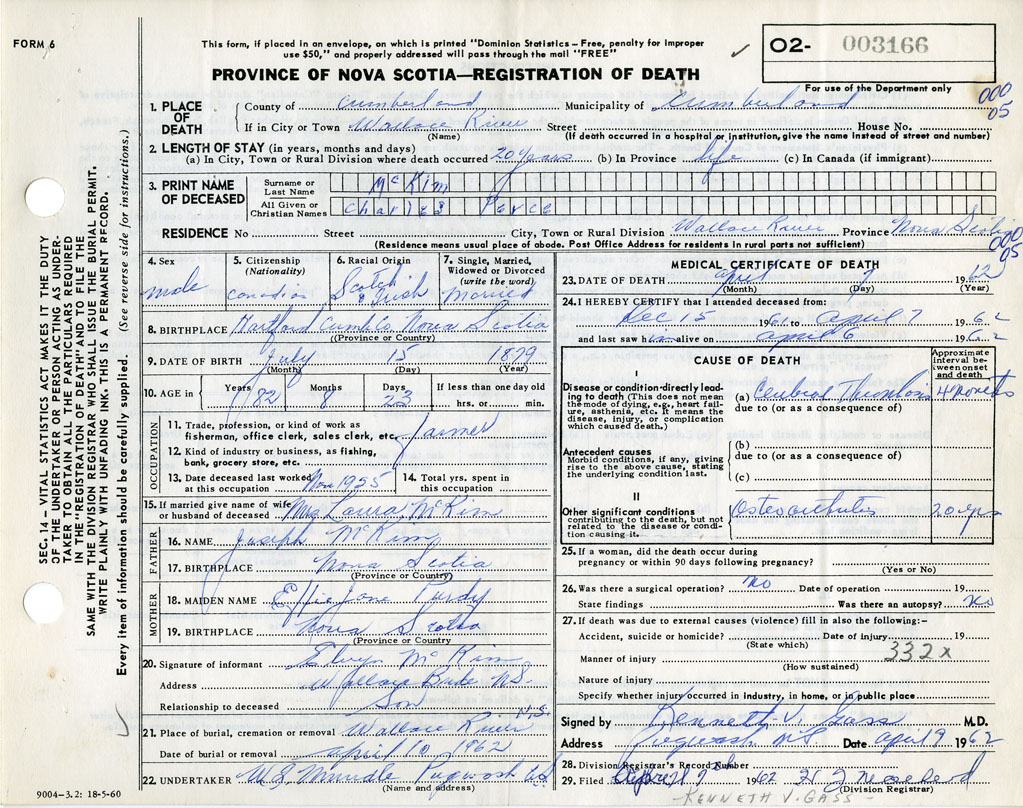 FORM 6
This form, if placed in an envelope, on which is printed "Dominion Statistics – Free, penalty for improper
use $50," and properly addressed will pass through the mail "FREE"
✓
O2- 003166
For use of the Department only
PROVINCE OF NOVA SCOTIA—REGISTRATION OF DEATH
000
05
1. PLACE OF DEATH County of Cumberland Municipality of Cumberland
If in City or Town Wallace River Street House No.
(Name) (If death occurred in a hospital or institution, give the name instead of street and number)
2. LENGTH OF STAY (in years, months and days)
(a) In City, Town or Rural Division where death occurred 20 years (b) In Province life (c) In Canada (if immigrant)
3. PRINT NAME OF DECEASED
Surname or Last Name McKim
All Given or Christian Names Charles Perce
RESIDENCE No. Street City, Town or Rural Division Wallace River Province Nova Scotia
(Residence means usual place of abode. Post Office Address for residents in rural parts not sufficient)
000
05
4. Sex male
5. Citizenship (Nationality) Canadian
6. Racial Origin Scotch & Irish
7. Single, Married, Widowed or Divorced (write the word) Married
8. BIRTHPLACE Hartford Cumb Co. Nova Scotia
(Province or Country)
9. DATE OF BIRTH July 15 1879
(Month) (Day) (Year)
10. AGE in Years 82 Months 8 Days 23 If less than one day old hrs. or min.
OCCUPATION
11. Trade, profession, or kind of work as fisherman, office clerk, sales clerk, etc. Farmer
12. Kind of industry or business, as fishing, bank, grocery store, etc.
13. Date deceased last worked at this occupation Nov 1955
14. Total yrs. spent in this occupation
15. If married give name of wife or husband of deceased Mrs Laura McKim
FATHER
16. NAME Joseph McKim
17. BIRTHPLACE Nova Scotia
(Province or Country)
MOTHER
18. MAIDEN NAME Effie Jane Purdy
19. BIRTHPLACE Nova Scotia
(Province or Country)
20. Signature of informant Elwyn McKim
Address Wallace N.S.
Relationship to deceased Son
21. Place of burial, cremation or removal Wallace River N.S.
Date of burial or removal April 10, 1862
22. UNDERTAKER Pugwash N.S.
(Name and address)
9004–3.2: 18-5-60
MEDICAL CERTIFICATE OF DEATH
23. DATE OF DEATH April 7 1962
(Month) (Day) (Year)
24. I HEREBY CERTIFY that I attended deceased from:
Dec 15 1961 to April 7 1962
and last saw him alive on April 6 1962
CAUSE OF DEATH
Approximate interval between onset and death
I
Disease or condition directly leading to death (This does not mean the mode of dying, e.g., heart failure, asthenia, etc. It means the disease, injury, or complication which caused death.)
(a) Cerebral Thrombosis 4 months
due to (or as a consequence of)
Antecedent causes
Morbid conditions, if any, giving rise to the above cause, stating the underlying condition last.
(b)
due to (or as a consequence of)
(c)
II
Other significant conditions contributing to the death, but not related to the disease or condition causing it.
Osteoarthritis 20 yrs
25. If a woman, did the death occur during pregnancy or within 90 days following pregnancy?
(Yes or No)
26. Was there a surgical operation? No Date of operation 19
State findings Was there an autopsy? No
27. If death was due to external causes (violence) fill in also the following:–
Accident, suicide or homicide? Date of injury 19
(State which)
332x
Manner of injury
(How sustained)
Nature of injury
Specify whether injury occurred in industry, in home, or in public place
Signed by Kenneth V. Gass M.D.
Address Pugwash N.S. Date April 9 1962
28. Division Registrar's Record Number
29. Filed April 9 1962
(Division Registrar)
KENNETH V. GASS
SEC. 14 – VITAL STATISTICS ACT MAKES IT THE DUTY
OF THE UNDERTAKER OR PERSON ACTING AS UNDER-
TAKER TO OBTAIN ALL THE PARTICULARS REQUIRED
IN THE "REGISTRATION OF DEATH" AND TO FILE THE
SAME WITH THE DIVISION REGISTRAR WHO SHALL ISSUE THE BURIAL PERMIT.
WRITE PLAINLY WITH UNFADING INK. THIS IS A PERMANENT RECORD.
Every item of information should be carefully supplied. (See reverse side for instructions.)